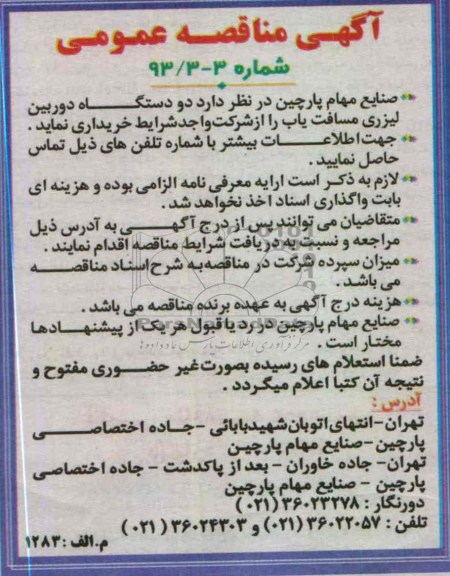 آگهی مناقصه عمومی
شماره ۳-۹۳/۳
صنایع مهام پارچین در نظر دارد دو دستگاه دوربین
لیزری مسافت یاب را ازشرکت واجدشرایط خریداری نماید .
جهت اطلاعات بیشتر با شماره تلفن های ذیل تماس
حاصل نمایید .
لازم به ذکر است ارایه معرفی نامه الزامی بوده و هزینه ای
بابت واگذاری اسناد اخذ نخواهد شد .
متقاضیان می توانند پس از درج آگهی به آدرس ذیل
مراجعه و نسبت به دریافت شرایط مناقصه اقدام نمایند .
میزان سپرده شرکت در مناقصه به شرح اسناد مناقصه
می باشد .
هزینه درج آگهی به عهده برنده مناقصه می باشد .
صنایع مهام پارچین در رد یا قبول هر یک از پیشنهادها
مختار است .
ضمنا استعلام های رسیده بصورت غیر حضوری مفتوح و
نتیجه آن کتبا اعلام میگردد .
آدرس :
تهران-انتهای اتوبان شهیدبابائی -جاده اختصاصی
پارچین -صنایع مهام پارچین
تهران- جاده خاوران - بعد از پاکدشت - جاده اختصاصی
پارچین - صنایع مهام پارچین
دورنگار : ۳۶۰۲۳۲۷۸ (۰۲۱)
تلفن : ۳۶۰۲۲۰۵۷ (۰۲۱) و ۳۶۰۲۴۳۰۳ (۰۲۱)
م.الف : ۱۲۸۳